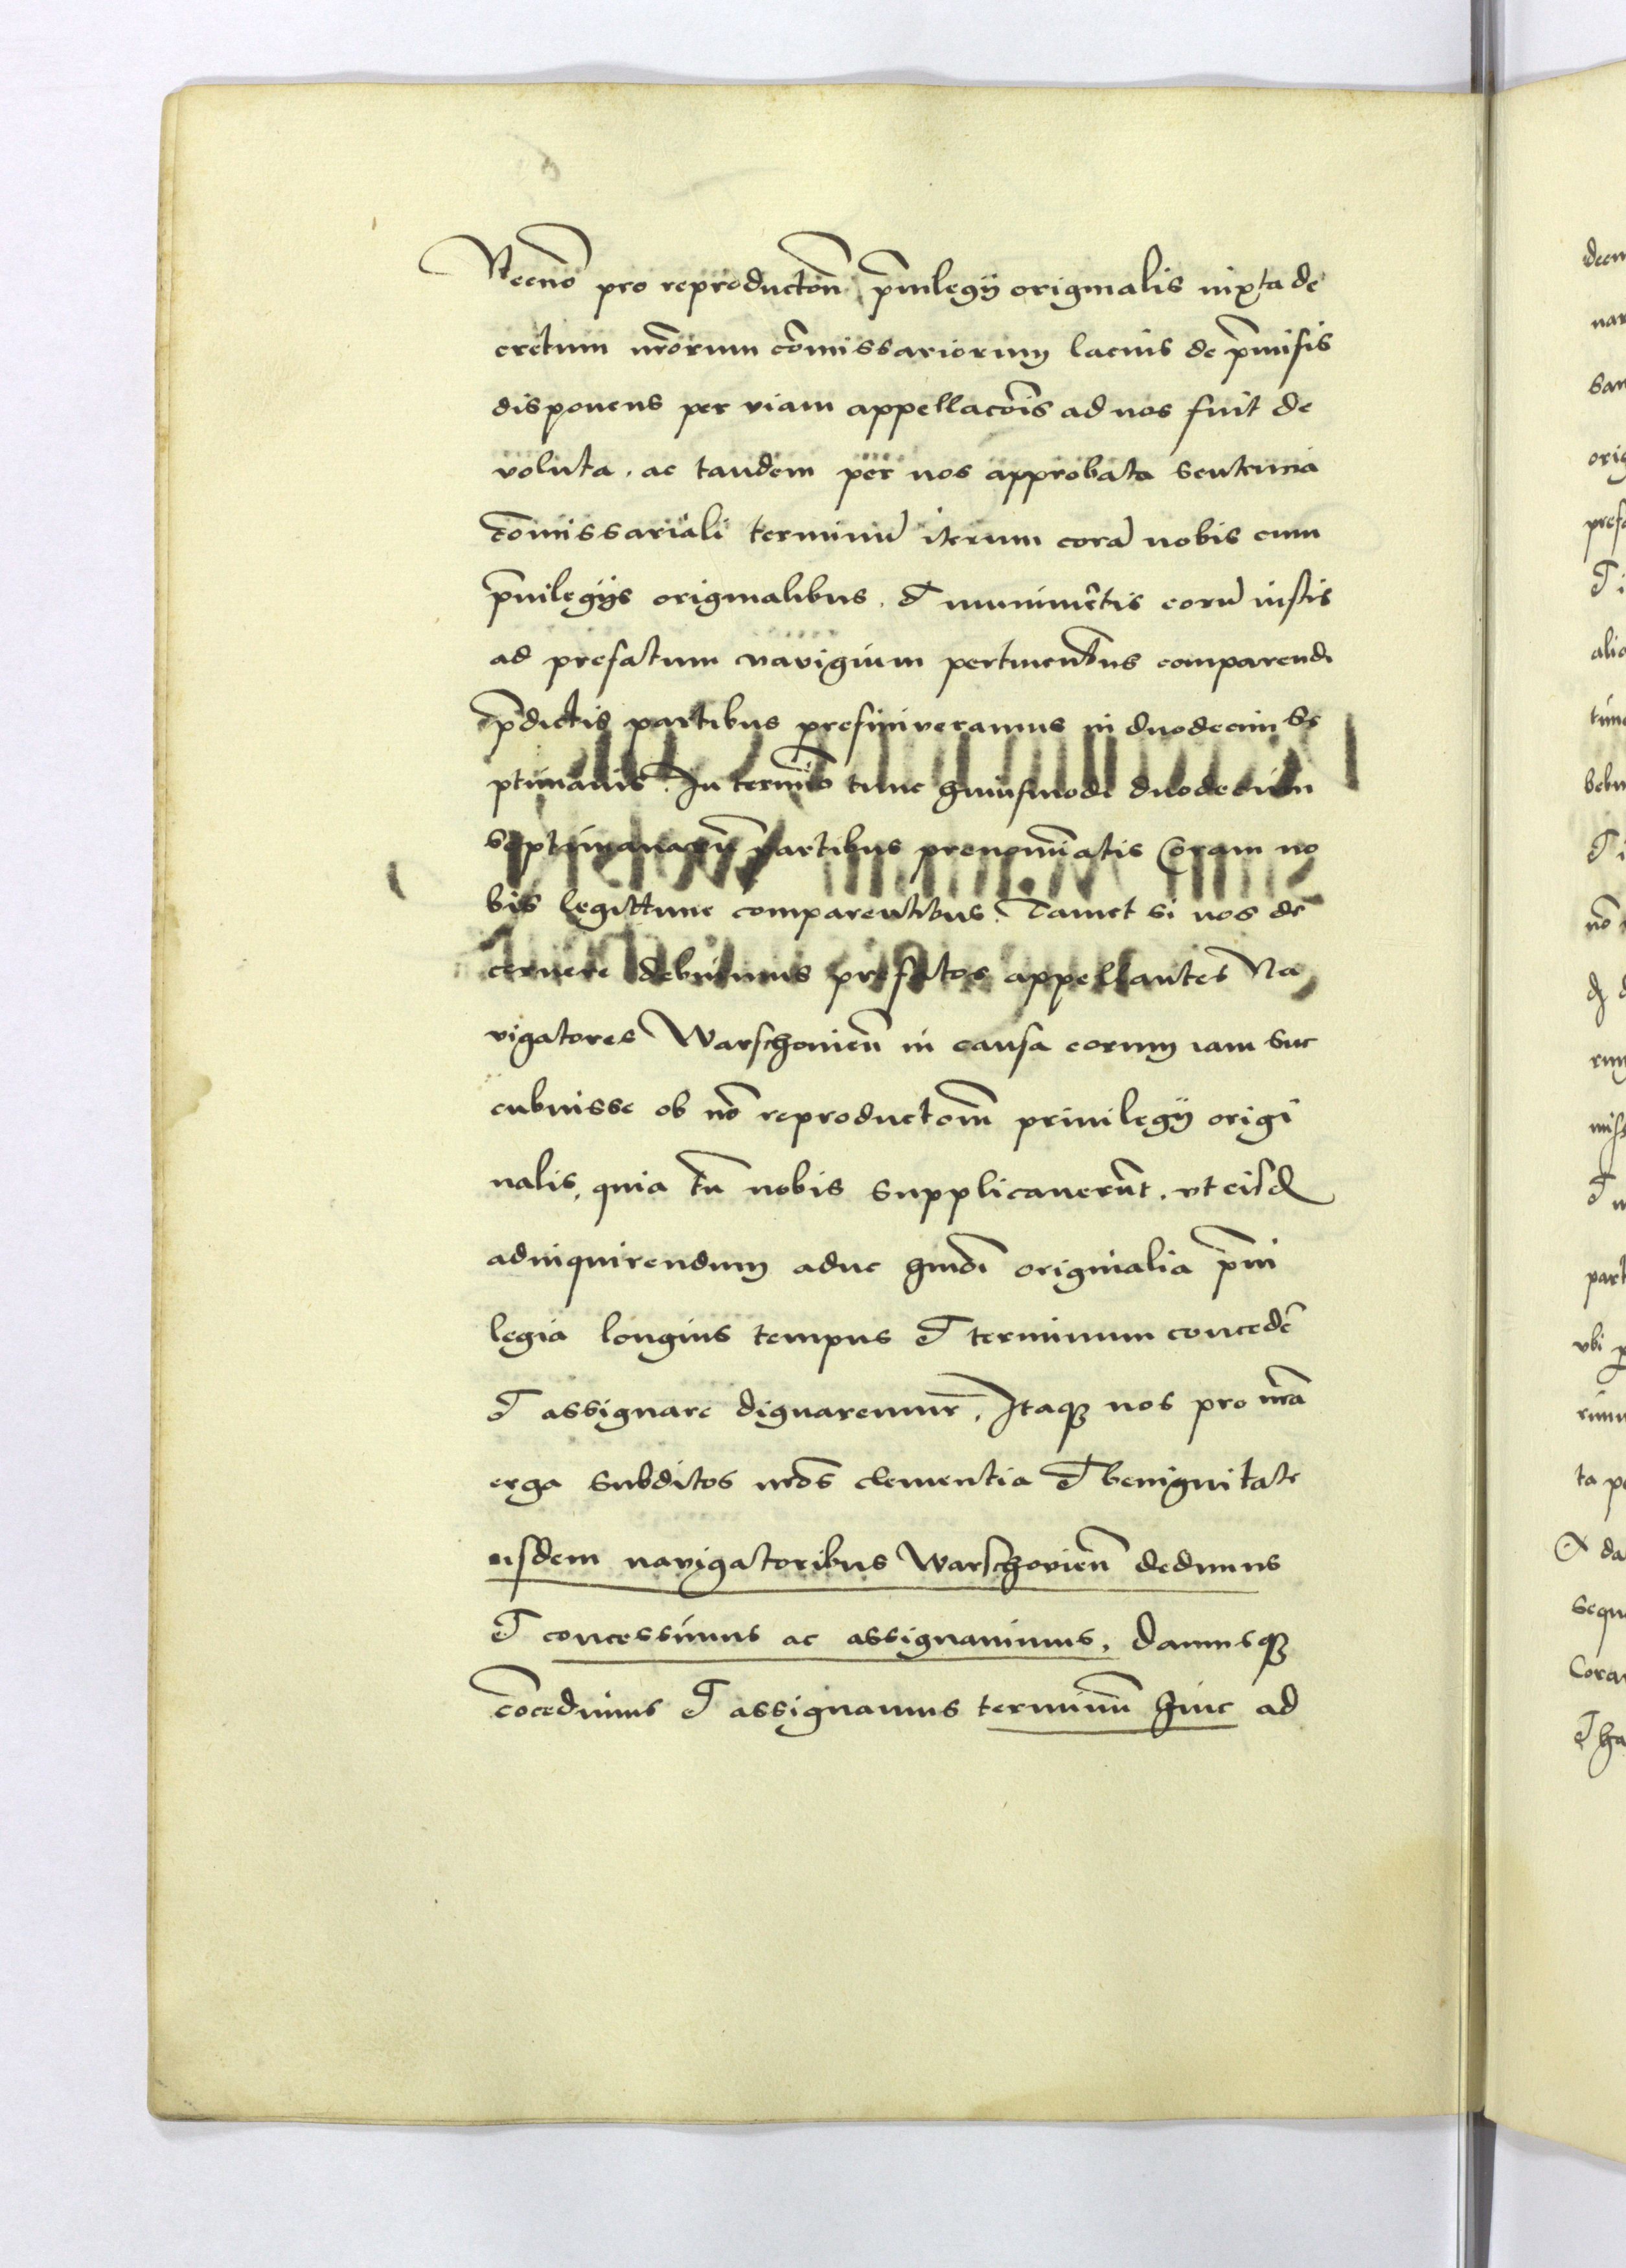 Necnō pro reproductōn p̄uilegij originalis iuxta de
cretum nr̄orum cōmissariorum lacius de p̄missis
disponens per viam appellacōis ad nos fuit de
voluta . ac tandem per nos approbata sentencia
cōmissariali terminū iterum corā nobis cum
p̄uilegijs originalibus . et munimētis eorū iustis
ad prefatum navigium pertinentibus comparendi
p̄dictis partibus prefiniveramus in duodecim se
ptimanis . In termino tunc huiusmodi duodecim
septimanarū partibus prenominatis Coram no
bis legittime comparentibus . Tamet si nos de
cernere debuimus prefatos appellantes Na
vigatores Warschouieñ in causa eorum iam suc
cubuisse ob nō reproductōm priuilegij origi
nalis, quia tn̄ nobis supplicauerūt . vt eisd
adinquirendum aduc hmōi originalia p̄ui
legia longius tempus et terminum concedē
et assignare dignaremur . Itaq nos pro nr̄a
erga subditos nr̄os clementia et benignitate
iisdem navigatoribus Warschovieñ dedimus
et concessimus ac assignauimus, damusq
cōcedimus et assignamus terminū hinc ad